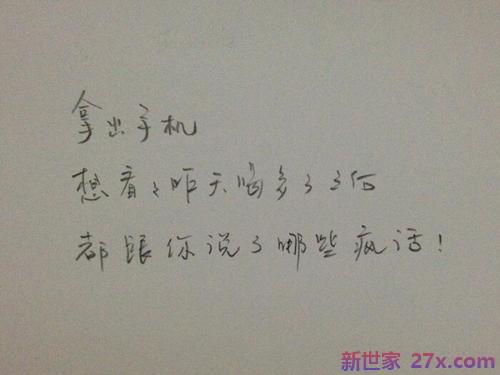 拿出手机
想看看昨天喝多了之后
都跟你说了哪些疯话！
新世家 27x.com